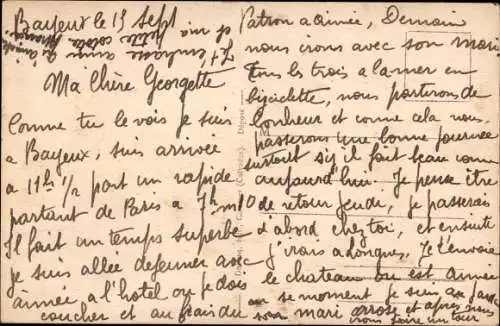 Bayeux le 13 sept
Je t'embrasse ainsi que
et ma petite
Ma Chère Georgette
Comme tu le vois je suis
a Bayeux, suis arrivée
a 11h 1/2 part un rapide
partant de Paris a 7h m10
Il fait un temps superbe
je suis allée dejeuner avec
Aimée a l'hotel ou je dois
coucher et au frais du
Patron a Aimée, Demain
nous irons avec son mari
Tous les trois a la mer en
bicyclette, nous partirons de
bonheur et comme cela nous
passerons une bonne journée
surtout s'il fait beau comme
aujourd'hui. Je pense être
de retour jeudi, je passerais
d'abord chez toi, et ensuite
j'irais a Longues. Je t'envoie
le chateau ou est Aimée
en se moment je suis au
son mari arrose et après nous
irons faire un tour